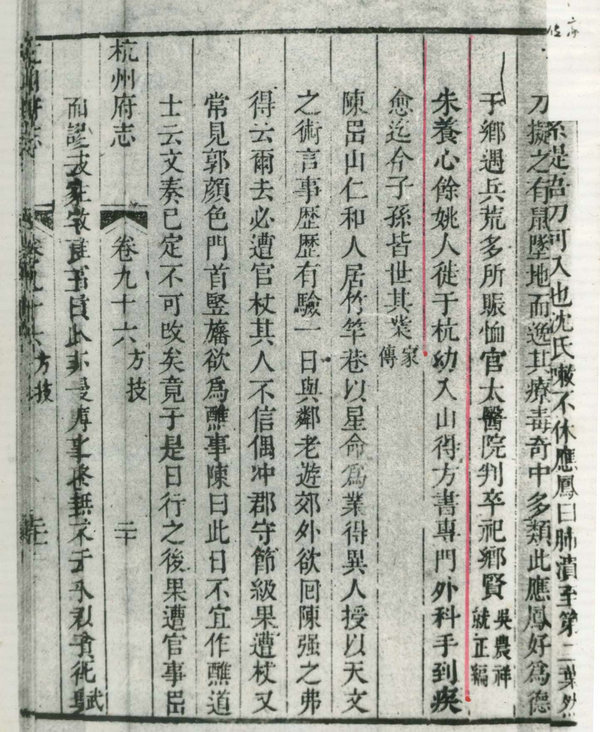 系是否刀可入也沈氏嗽不休應鳳曰肺潰至第二葉然
刀擬之有鼠墜地而逸其療毒奇中多類此應鳳好為德
于鄉遇兵荒多所賑恤官太醫院判卒祀鄉賢吳農祥就正編
朱養心餘姚人徙于杭幼入山得方書專門外科手到疾
愈迄今子孫皆世其業家傳
陳岊山仁和人居竹竿巷以星命為業得異人授以天文
之術言事歷歷有驗一日與鄰老遊郊外欲回陳强之弗
得云爾去必遭官杖其人不信偶冲郡守節級果遭杖又
常見郭顏色門首竪旛欲為醮事陳曰此日不宜作醮道
士云文奏已定不可改矣竟于是日行之後果遭官事出
杭州府志
卷九十六 方技
二十
方技